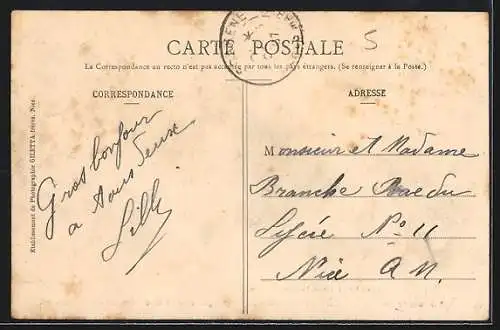 CARTE POSTALE
5
La Correspondance au recto n'est pas acceptée par tous les pays étrangers. (Se renseigner à la Poste).
CORRESPONDANCE
ADRESSE
Gros bonjour
a tous deux
Lilly
Monsieur et Madame
Branche Rue du
Lycée No 11
Nice A. M.
Etablissement de Photographie GILETTA frères, Nice.